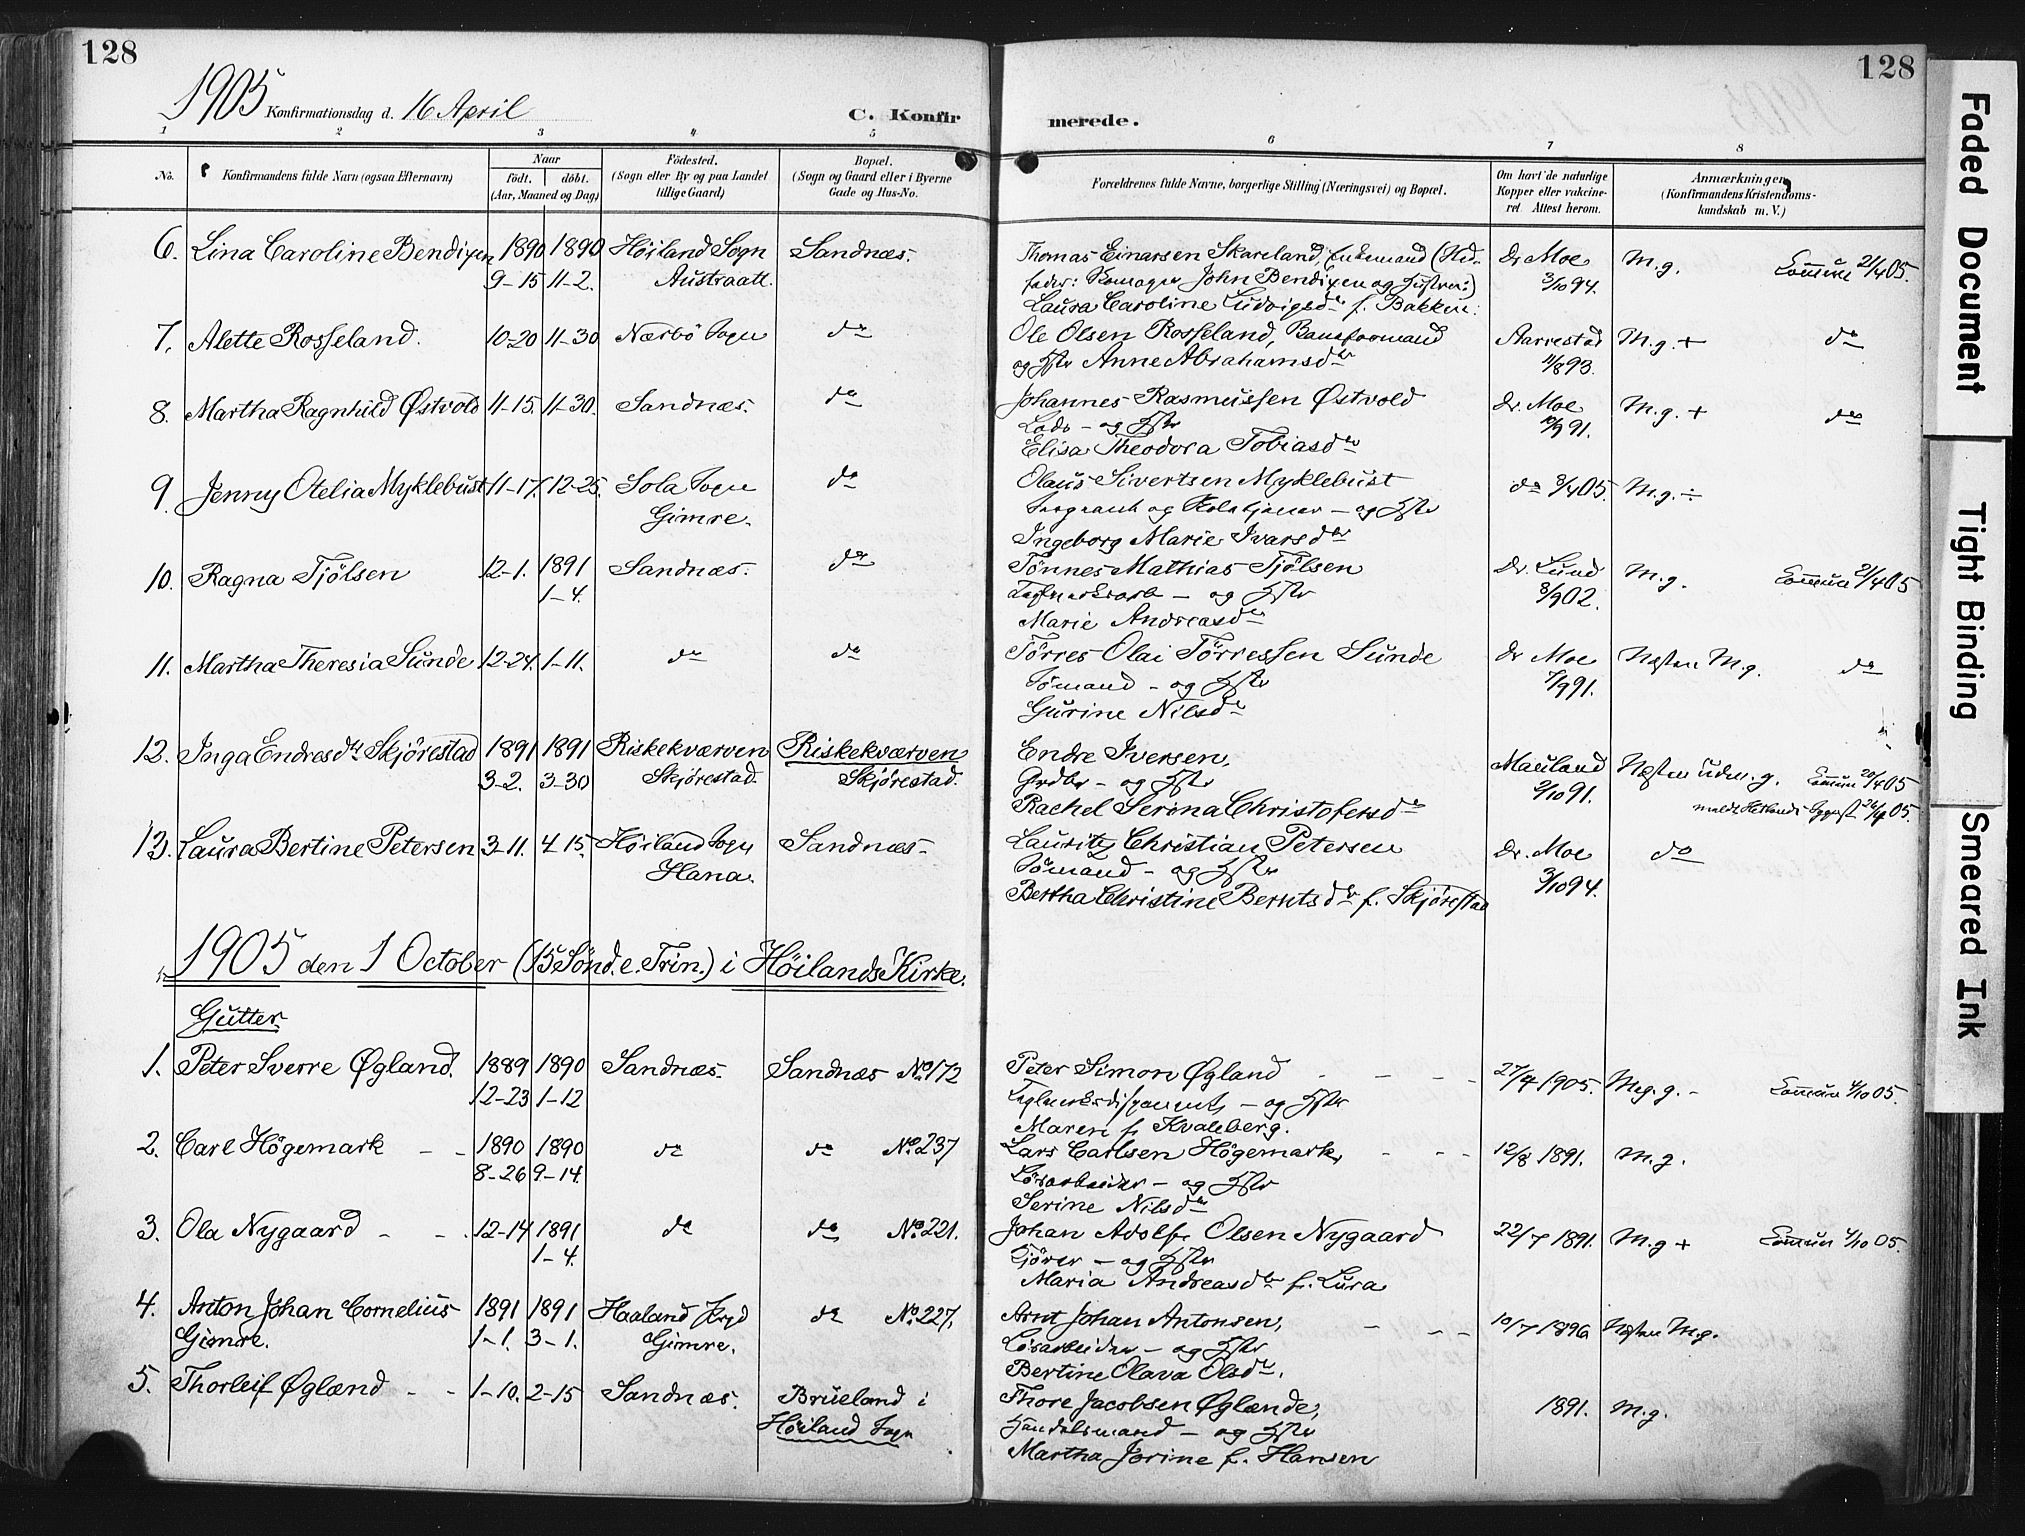 128
1905 Konfirmationsdag d. 16 April
C. Konfir
1 2 3 4 5
No.
Konfirmandens fulde Navn (ogsaa Efternavn)
Naar
födt. döbt.
(Aar, Maaned og Dag)
Födested.
(Sogn eller By og paa Landet
tillige Gaard)
Bopæl.
(Sogn og Gaard eller i Byerne
Gade og Hus-No.
6. Lina Caroline Bendixen 1890 1890 Höiland Sogn Sandnæs.
9-15 11-2. Austraatt.
7. Alette Rosseland. 10-20 11-30 Nærbö Sogn do
8. Martha Ragnhild Østvold 11-15. 11-30. Sandnæs. do
9. Jenny Otelia Myklebust 11-17. 12-25. Sola Sogn do
Gimre.
10. Ragna Tjölsen 12-1. 1891 Sandnæs. do
1-4.
11. Martha Theresia Sunde 12-24. 1-11. do do
12. Inga Endresdtr Skjörestad 1891 1891 Riskekværven Riskekværven
3-2. 3-30 Skjörestad. Skjörestad.
13. Laura Bertine Petersen 3-11. 4-15. Höiland Sogn Sandnæs.
Hana.
1905 den 1 October (15 Sönd. e. Trin.) i Höilands Kirke.
Gutter.
1. Peter Sverre Øgland. 1889 1890 Sandnæs. Sandnæs No 172
12-23 1-12
2. Carl Högemark - - 1890 1890 do do No 237
8-26 9-14.
3. Ola Nygaard - - 12-14 1891 do do No 221.
1-4.
4. Anton Johan Cornelius 1891 1891 Haaland Prgd do No 227.
Gimre. 1-1. 3-1. Gimre.
5. Thorleif Øglænd - - 1-10. 2-15 Sandnæs. Brueland i
Höiland Sogn
128
merede.
6 7 8
Forældrenes fulde Navne, borgerlige Stilling (Næringsvei) og Bopæl.
Om havt de naturlige
Kopper eller vakcine-
ret. Attest herom.
Anmærkninger
(Konfirmandens Kristendoms-
kundskab m. V.)
Thomas Einarsen Skareland, Enkemand (Pleie-
fader: John Bendixen og Hustru:) Dr Moe 3/10 94. M.g. Commun 21/4 05.
Laura Caroline Ludvigsdr f. Bakken.
Ole Olsen Rosseland, Baneformand Aarrestad M.g. + do
og Hstr Anne Abrahamsdtr 11/8 93.
Johannes Rasmussen Østvold Dr. Moe M.g. + do
Lods - og Hstr
Elisa Theodora Tobiasdtr
Olaus Sivertsen Myklebust do 8/4 05. M.g. ÷
og Hstr
Ingeborg Marie Ivarsdtr
Tönnes Mathias Tjölsen Dr. Lund M.g. Commun 21/4 05
- og Hstr 8/9 02.
Marie Andreasdtr
Törres Olai Törressen Sunde Dr Moe Næsten M.g. do
Sömand - og Hstr 7/9 91.
Gurine Nilsdtr
Endre Iversen, Mauland Næsten udm. g. Commun 20/4 05
Grdbr - og Hstr 9/10 91.
Rachel Serina Christofersdtr
Lauritz Christian Petersen Dr. Moe do
Sömand - og Hstr 3/10 94.
Bertha Christine Berntsdtr f. Skjörestad
Peter Simon Øgland - - - - 27/4 1905. M.g. - Commun 4/10 05.
Teglverksdisponent - og Hstr
Maren f. Kvaleberg.
Lars Carlsen Högemark, - - - 12/8 1891. M.g.
Lösarbeider - og Hstr
Serine Nilsdtr
Johan Adolf Olsen Nygaard 22/7 1891. M.g + Commun 4/10 05.
Kjörer - og Hstr
Maria Andreasdtr f. Lura
Arnt Johan Antonsen, - - - 10/7 1896 Næsten M.g.
Lösarbeider - og Hstr
Bertine Olava Olsdtr.
Thore Jacobsen Øglænde, 1891. M.g.
Handelsmand - og Hstr
Martha Jorine f. Hansen
Faded Document
Tight Binding
Smeared Ink